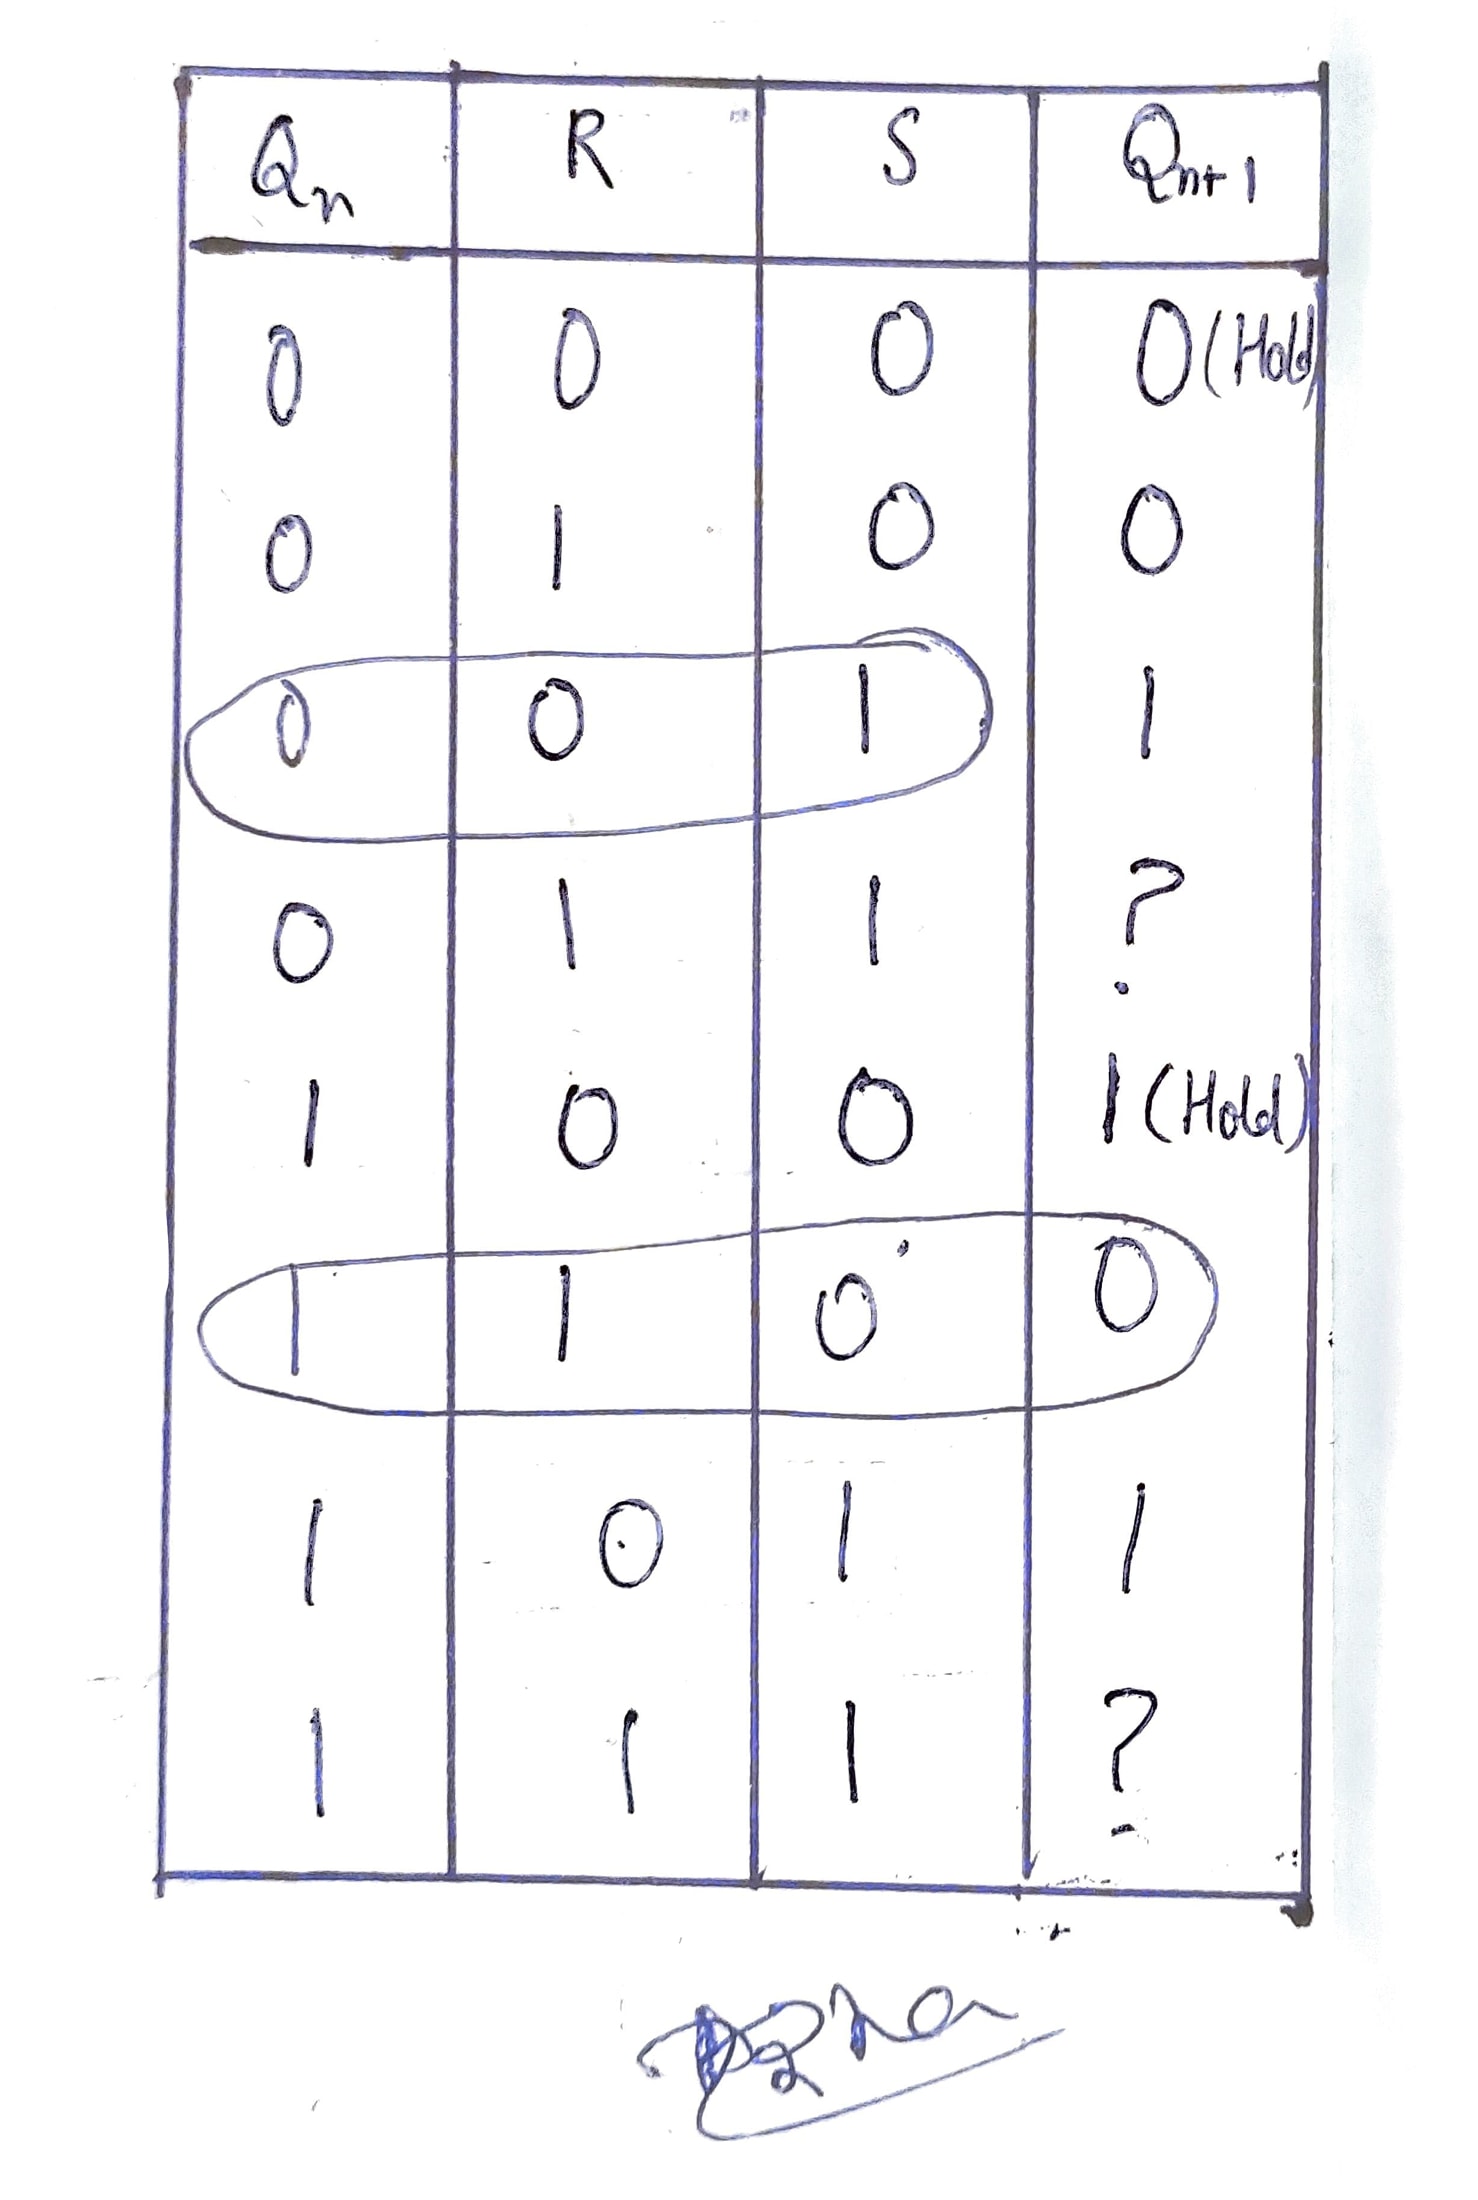 Qn R S Qn+1
0 0 0 0 (Hold)
0 1 0 0
0 0 1 1
0 1 1 ?
1 0 0 1 (Hold)
1 1 0 0
1 0 1 1
1 1 1 ?